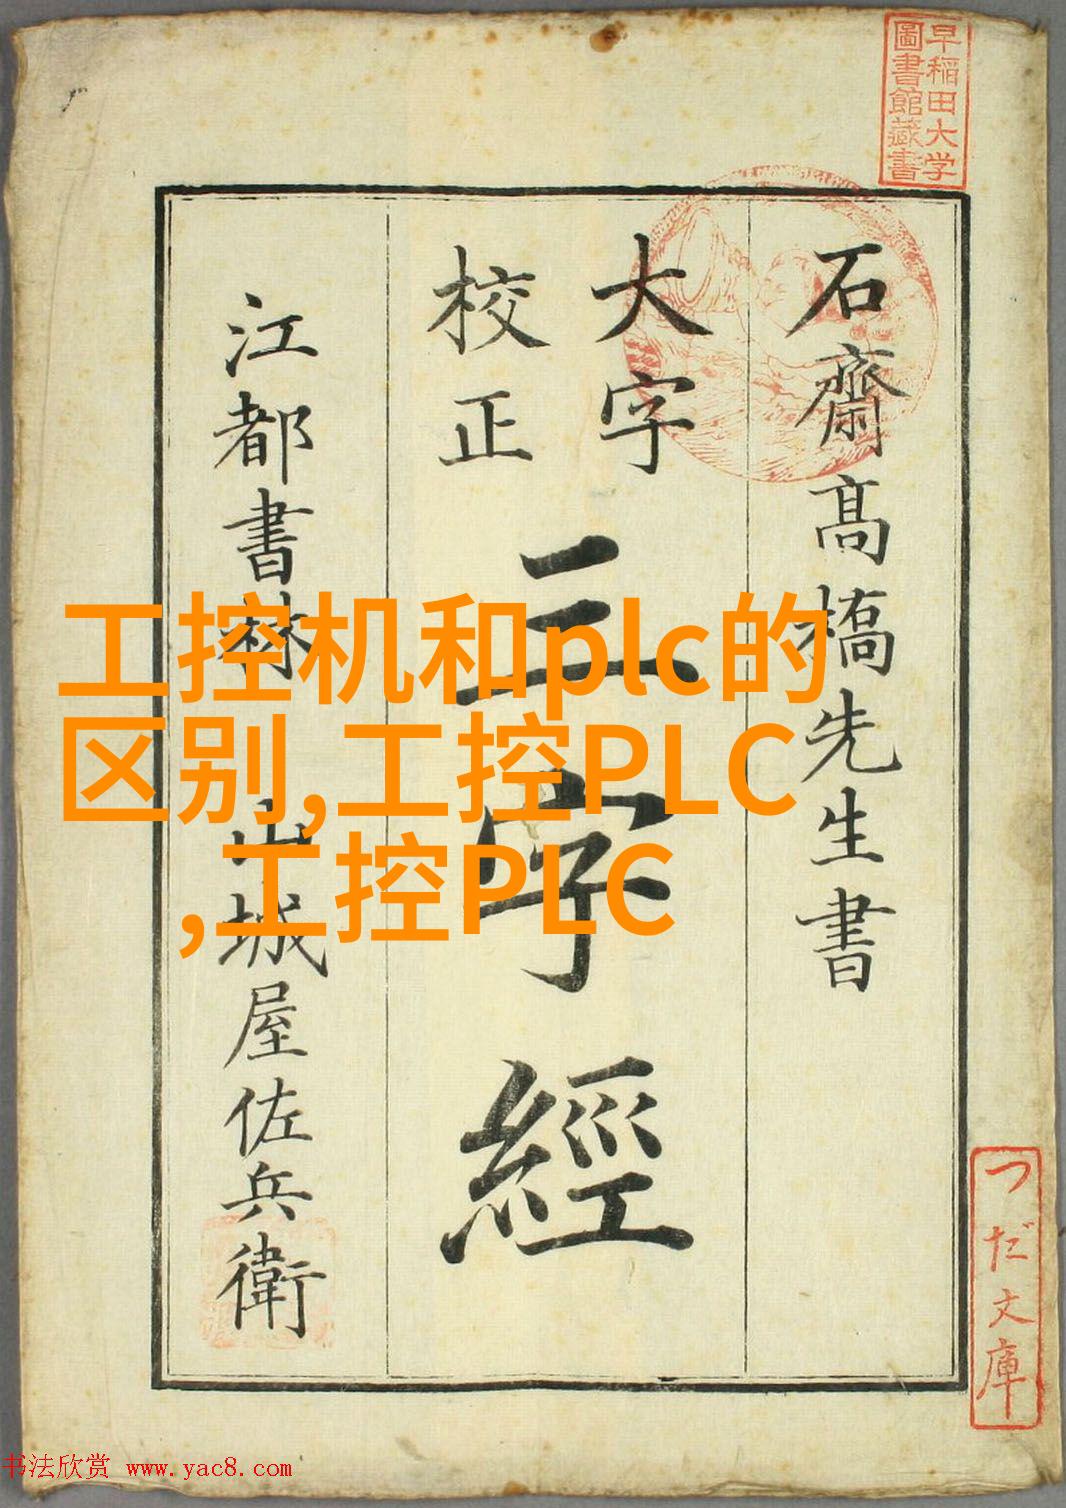 早稲田大学
圖書館藏書
石齋髙橋先生書
大字
校正
三字經
江都書林 山城屋佐兵衛
工控机和plc的
区别,工控PLC
,工控PLC
つだ文庫
书法欣赏 www.yac8.com